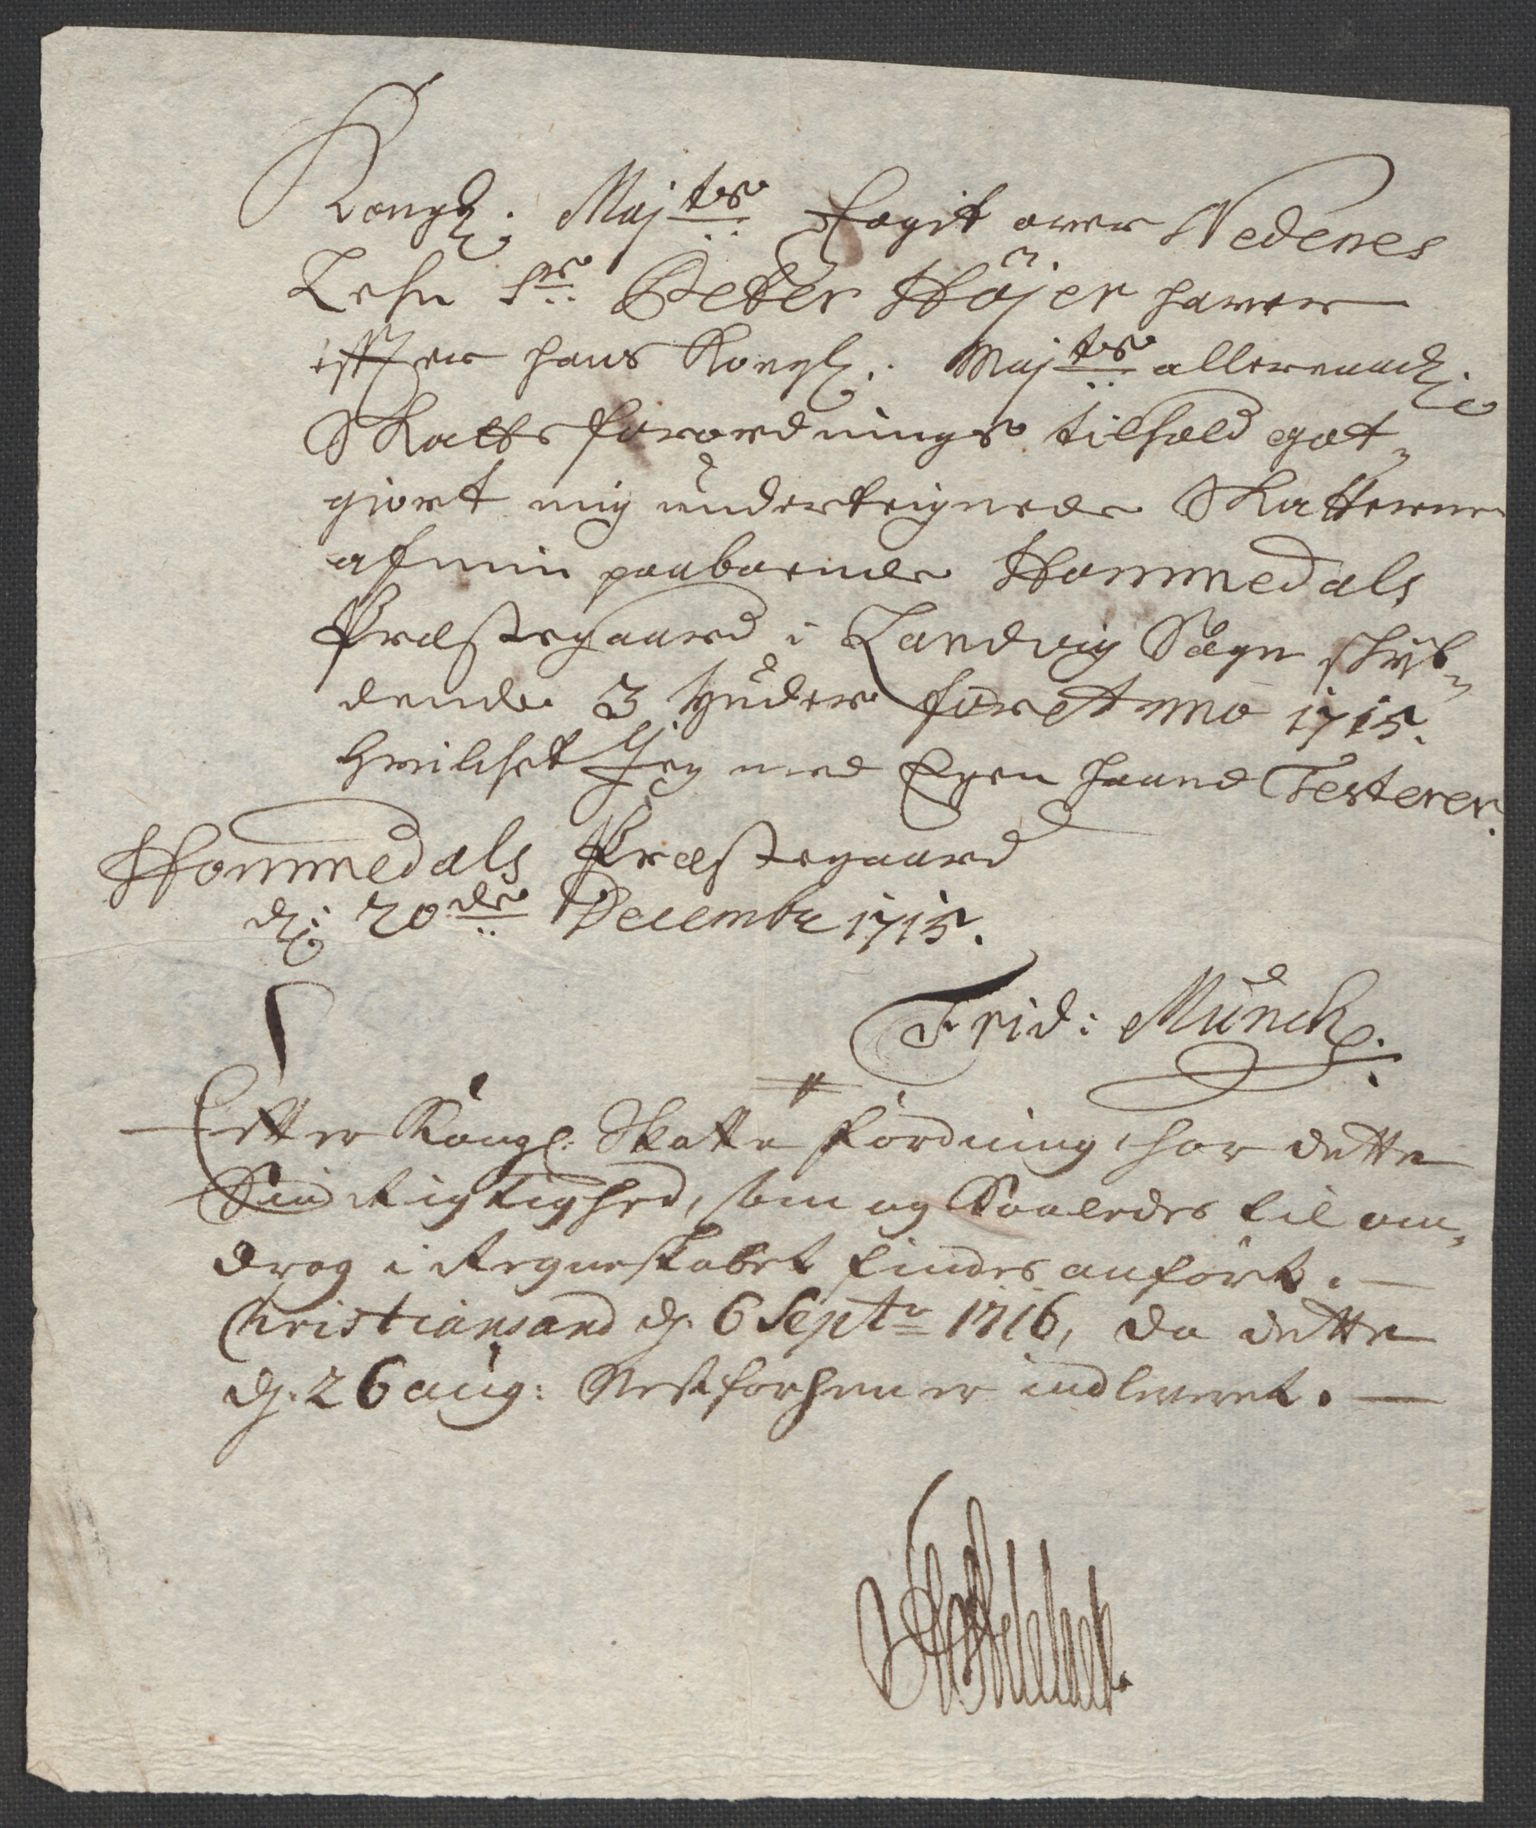 Kongl: Maj:ts Fogit over Nedenes
Lehn Sr: Peter Höjer haver
effter hans Kongl: Maj:ts allernaadi:
Skatts forordnings tilhold got-
giort mig underteignede Skatterne
af min paaboende Hommedals
Præstegaard i Landvig Sogn, skyl-
dende 3 Huder for Anno 1715.
Hvilchet Jeg med Egen haand Testerer.
Hommedals Præstegaard
d: 20de Decembr 1715.
Frid: Münch.
Efter Kongl: Skatte fordning har dette
Sin Rigtighed, som og Saaledes til om-
drag i Regneskabet findes anfört.
Christiansand d. 6 Septr 1716, da dette
d. 26 aug: Nestforhen er indleveret.